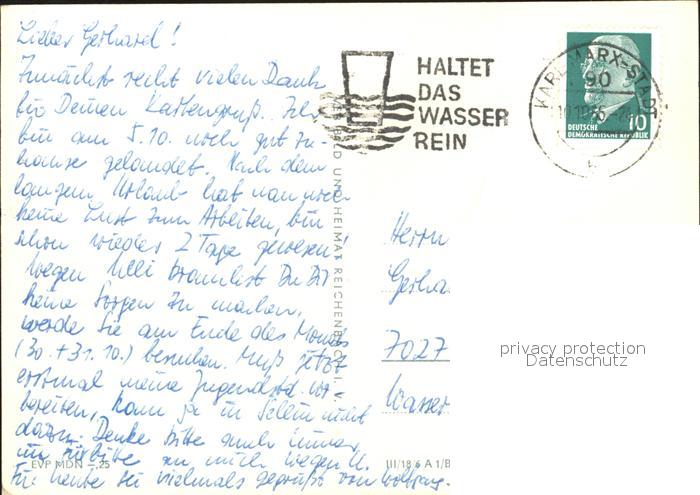 Lieber Gerhard!
Zunächst recht vielen Dank
für Deinen Kartengruß. Ich
bin am 5.10. noch gut zu-
hause gelandet. Nach dem
langen Urlaub hat man noch
keine Lust zum Arbeiten, bin
schon wieder 2 Tage gewesen.
Wegen Ulli brauchst Du Dir
keine Sorgen zu machen,
werde sie am Ende des Monats
(30.+31.10.) besuchen. Muß jetzt
erstmal meine Jugendstd. vor
bereiten, kam ja in Selem nicht
dazu. Denke bitte auch immer
in Fürbitte an mich wegen U.
Für heute sei vielmals gegrüßt von Wolfgang.
EVP MDN -,25
III/18/6 A 1/B
BILD UND HEIMAT REICHENBACH I. V.
HALTET
DAS
WASSER
REIN
KARL-MARX-STADT
90
DEUTSCHE
DEMOKRATISCHE REPUBLIK
10
Herrn
Gerha
7027
Wasser
privacy protection
Datenschutz